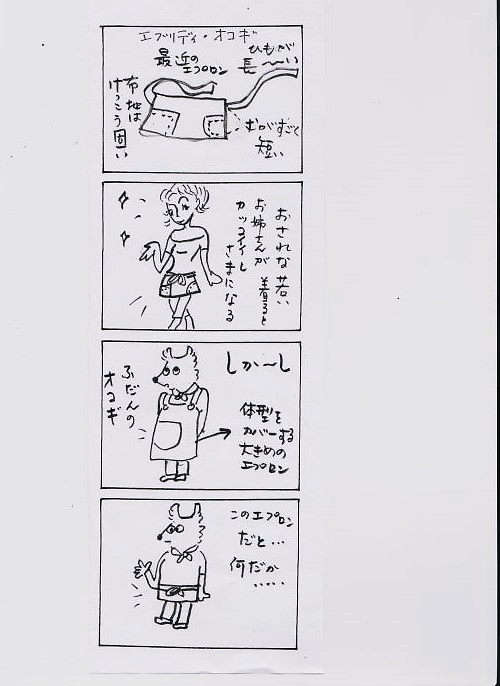 エブリディ・オコギ
最近の
エプロン
ひもが
長〜い
布地は
けっこう固い
むがすごく
短い
おされな若い
お姉さんが着ると
カッコイイし
さまになる
しか〜し
ふだんの
オコギ
体型を
カバーする
大きめの
エプロン
このエプロン
だと…
何だか
……